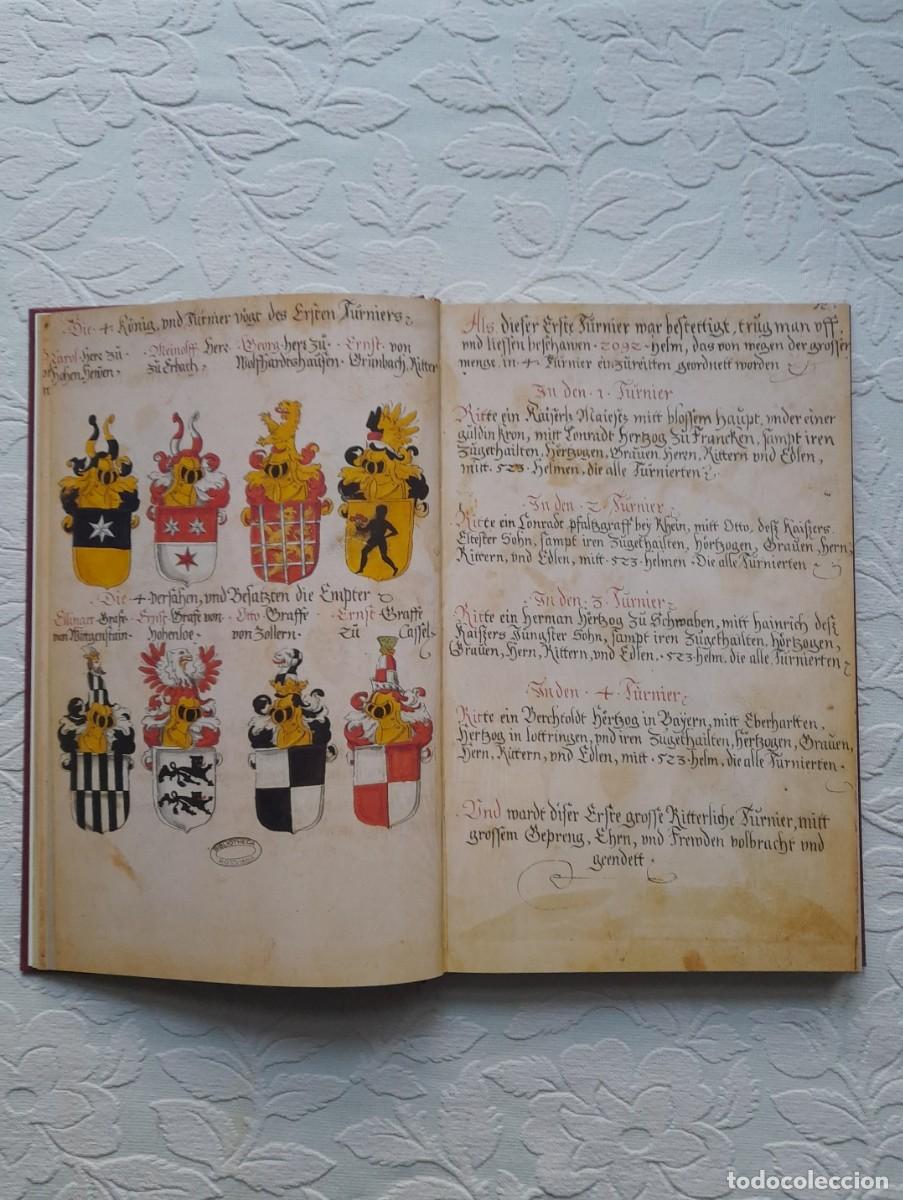 Die 4 König, vnd Turnier vögt des Ersten Turniers
Karol Herr zu
Hohen Hewen
Meinolff Herr
zu Erbach
Georg Herr zu
Wolfhardtshausen
Ernst von
Grunbach, Ritter
Die 4 versahen, vnd Besatzten die Empter
Ellinger Grafe
von Wittgenstain
Ernst Grafe von
Hohenloe
Otto Graffe
von Zollern
Ernst Graffe
zu Cassel
BIBLIOTHECA
Als dieser Erste Turnier war bestettigt, trug man vff,
vnd liessen beschawen 2092 Helm, das von wegen der grossen
menge in 4 Turnier einzureitten geordnett worden
In den 1 Turnier
Ritte ein Kaiserl: Maiestz mitt blossem Haupt, vnder einer
guldin Kron, mitt Conradt Hertzog zu Francken, sampt iren
Zugethailten, Hertzogen, Grauen, Heren, Rittern vnd Edlen,
mitt 523 Helmen, die alle Turnierten
In den 2 Turnier
Ritte ein Conradt pfaltzgraff bey Rhein, mitt Otto, deß Kaisers
Eltester Sohn, sampt iren Zugethailten, Hörtzogen, Grauen, Hern,
Rittern, vnd Edlen, mitt 523 helmen Die alle Turnierten
In den 3 Turnier
Ritte ein Herman Hertzog zu Schwaben, mitt Hainrich deß
Kaißers Jungster Sohn, sampt iren Zugethailten, Hörtzogen,
Grauen, Hern, Rittern, vnd Edlen, 523 helm, die alle Turnierten
In den 4 Turnier
Ritte ein Berchtoldt Hertzog in Bayern, mitt Eberhartten,
Hertzog in Lottringen, vnd iren Zugethailten, Hertzogen, Grauen,
Hern, Rittern, vnd Edlen, mitt 523 helm, die alle Turnierten
Vnd wardt diser Erste grosse Ritterliche Turnier, mitt
grossem Gepreng, Ehrn, vnd Frewden volbracht vnd
geendett
todocoleccion